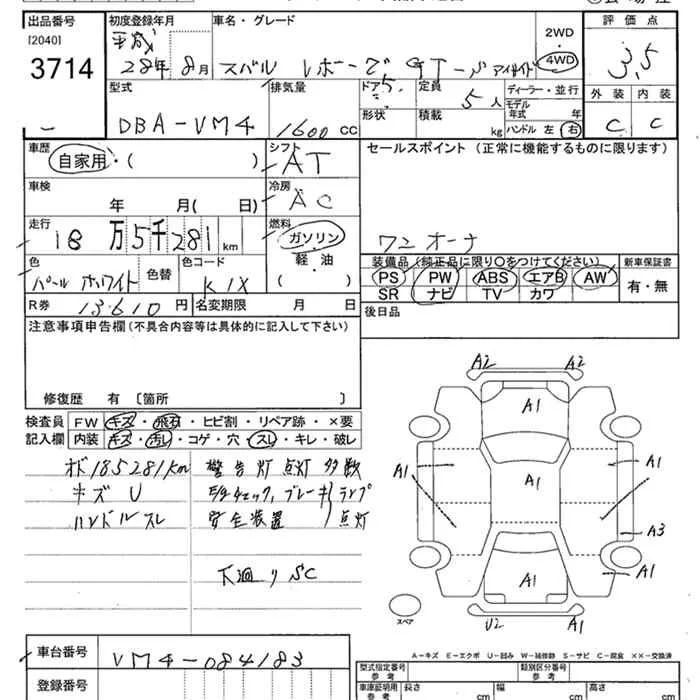 出品番号 初度登録年月 車名・グレード 2WD 評価点
[2040] 平成 4WD 3.5
3714 28年 8月 スバル レボーグ GT-S アイサイト
型式 排気量 ドア 定員 ディーラー・並行 外装 内装
5 5人 モデル年式 年
DBA-VM4 1600 CC 形状 積載 kg ハンドル 左 右 C C
車歴 シフト セールスポイント (正常に機能するものに限ります)
自家用・( ) AT
車検 冷房
年 月( 日) AC
走行 燃料
18万5千281km ガソリン ワンオーナ
軽・油
色 色替 色コード ( ) 装備品(純正品に限り○をつけてください) 新車保証書
パール ホワイト K1X PS PW ABS エアB AW 有・無
R券 13,610円 名変期限 月 日 SR ナビ TV カワ
注意事項申告欄(不具合内容等は具体的に記入して下さい) 後日品
修復歴 有 〔箇所 〕
検査員 FW キズ・飛石・ヒビ割・リペア跡・×要
記入欄 内装 キズ・汚し・コゲ・穴・スレ・キレ・破レ
オド 185281km 警告灯 点灯 多数
キズ U E/gチェック、ブレーキ ランプ
ハンドルスレ 安全装置 点灯
下廻り SC
A2 A2
A1
A1 A1 A1
A3
A1 A1
U2 A1
スペア
A-キズ E-エクボ U-凹み W-補修跡 S-サビ C-腐食 XX-交換済
車台番号 VM4-084183 型式指定番号 参考 類別区分番号 参考
登録番号 車庫証明用 参考 長さ cm 幅 cm 高さ cm